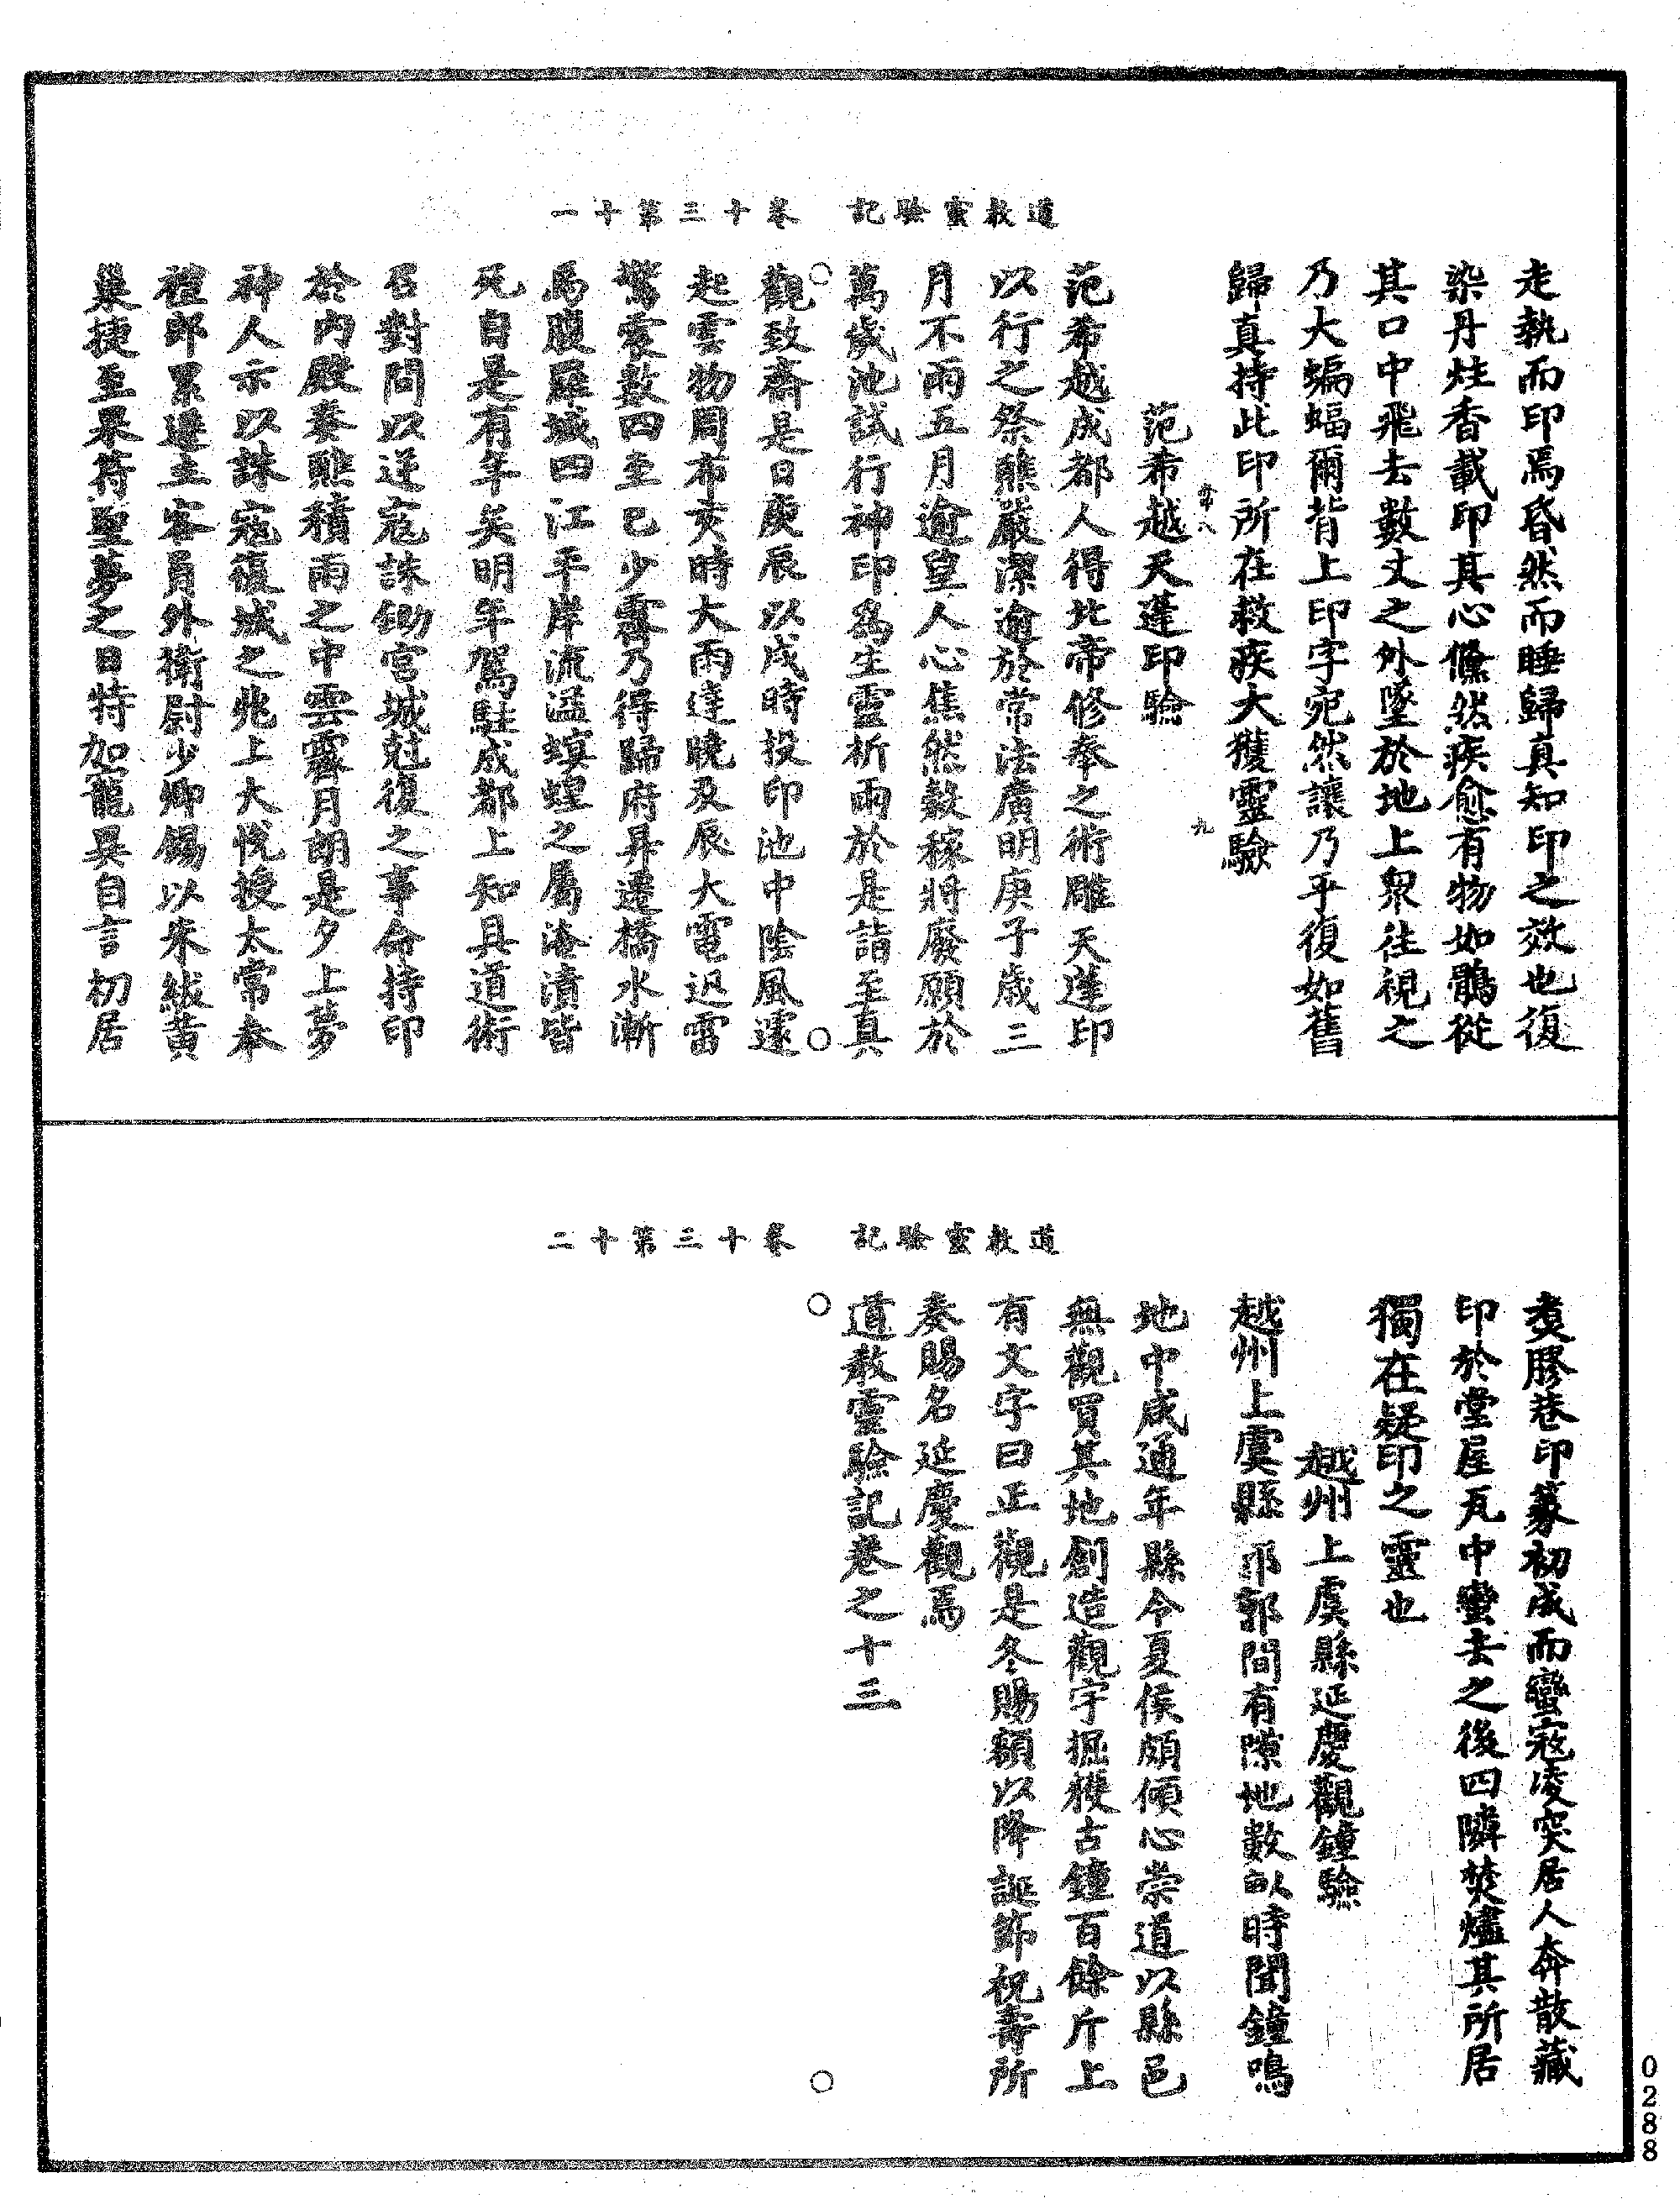 道教靈驗記　卷十三第十一
走執而印焉昏然而睡歸真知印之效也復
染丹炷香載印其心儵然疾愈有物如鶻從
其口中飛去數丈之外墜於地上衆往視之
乃大蝙蝠爾背上印字宛然讓乃平復如舊
歸真持此印所在救疾大獲靈驗
常八
九
范希越天蓬印驗
范希越成都人得北帝修奉之術雕天蓬印
以行之祭醮嚴潔逾於常法廣明庚子歲三
月不雨五月逾皇人心焦然穀稼將廢願於
萬歲池試行神印爲生靈祈雨於是詣至真
觀致齋是日庚辰以戌時投印池中陰風遽
起雲物周布亥時大雨達曉及辰大電迅雷
驚震數四至巳少霽乃得歸府昇遷橋水漸
馬腹羅城四江平岸流溢螟蝗之屬淹漬皆
死自是有年矣明年駕駐成都上知具道術
召對問以逆寇誅鋤宮城尅復之事命持印
於內殿奏醮積雨之中雲霽月朗是夕上夢
神人示以誅寇復城之兆上大悅授太常奉
禮郎累遷主客員外衛尉少卿錫以朱紱黃
巢捷至果符聖夢之日特加寵異自言初居
道教靈驗記　卷十三第十二
煑膠巷印篆初成而蠻寇凌突居人奔散藏
印於堂屋瓦中蠻去之後四隣焚燼其所居
獨在疑印之靈也
越州上虞縣延慶觀鐘驗
越州上虞縣郭間有隙地數畝時聞鐘鳴
地中咸通年縣令夏侯頗傾心崇道以縣邑
無觀買其地創造觀宇掘獲古鐘百餘斤上
有文字曰正觀是冬賜額以降誕節祝壽所
奏賜名延慶觀焉
道教靈驗記卷之十三
0288